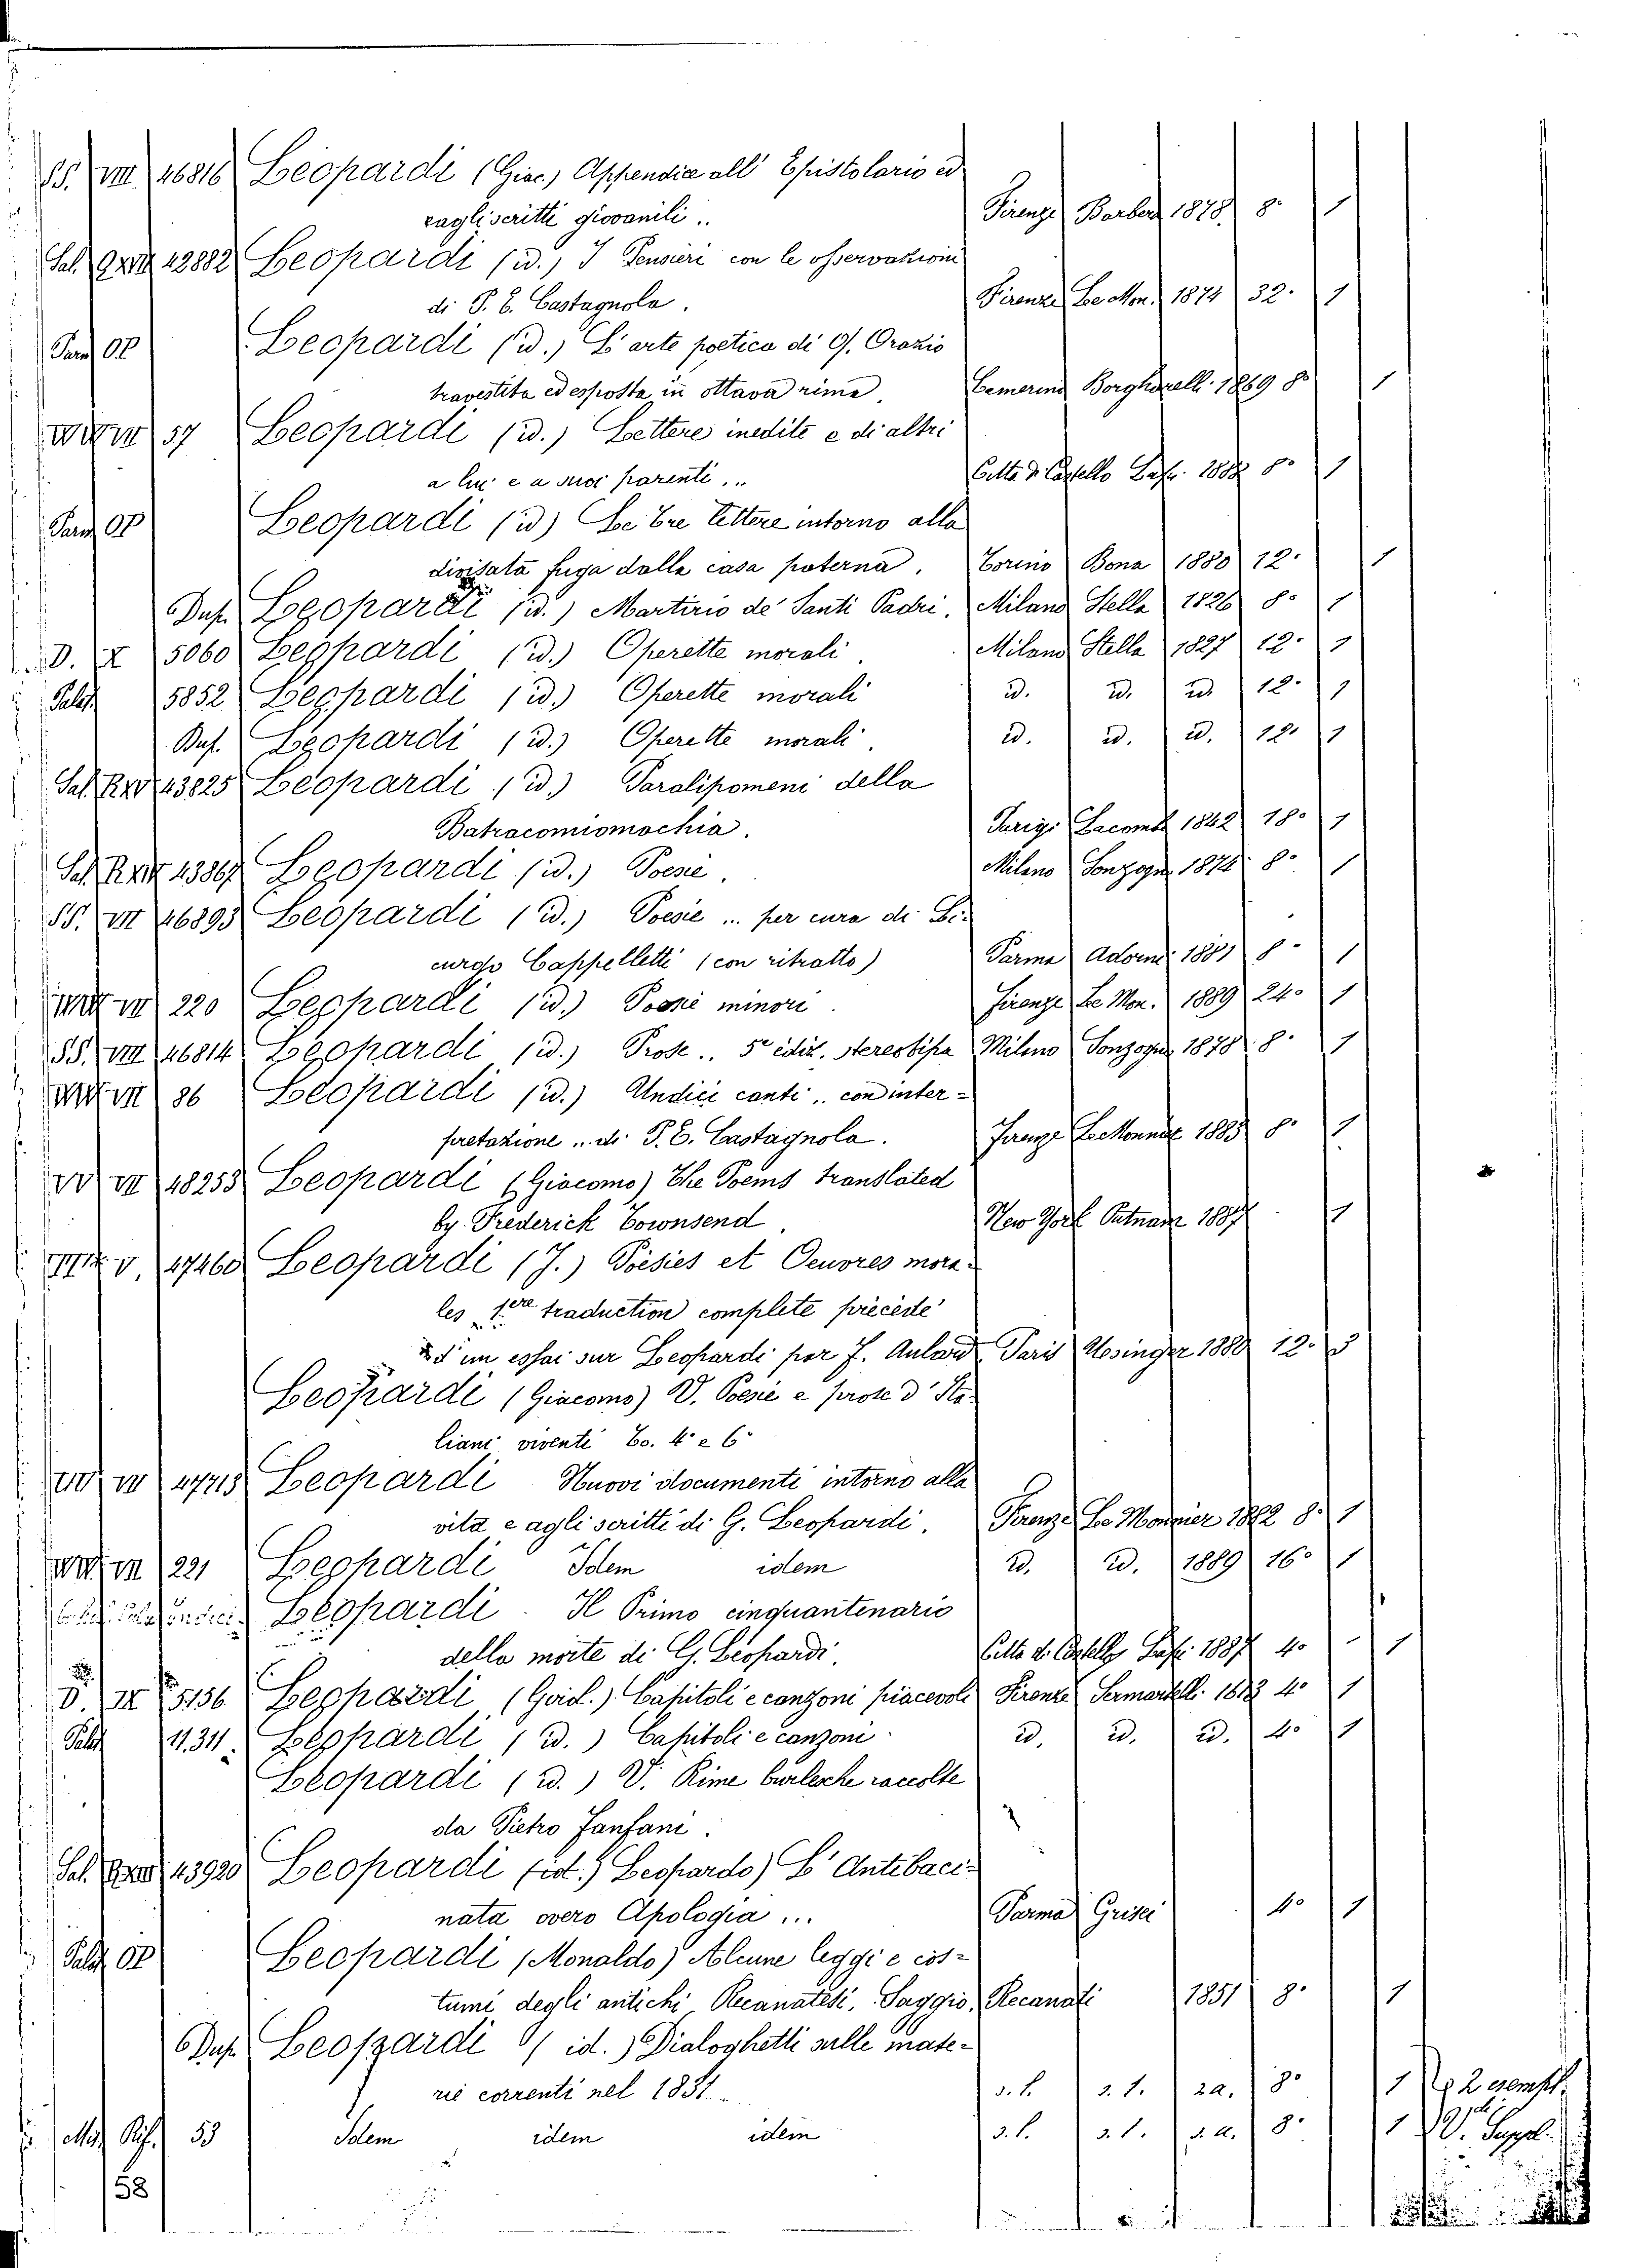 SS. VIII 46816 Leopardi (Giac.) Appendice all' Epistolario ed
eagli scritti giovanili .. Firenze Barbera 1878 8° 1
Sal. 42882 Leopardi (id.) I Pensieri con le osservazioni
di P. E. Castagnola. Firenze Le Mon. 1874 32° 1
OP Leopardi (id.) L'arte poetica di Q. Orazio
travestita ed esposta in ottava rima. Camerino Borgharelli 1869 8° 1
57 Leopardi (id.) Lettere inedite e di altri
a lui e a suoi parenti... Città di Castello Lapi 1888 8° 1
OP Leopardi (id) Le tre lettere intorno alla
divisata fuga dalla casa paterna. Torino Bona 1880 12° 1
Dup. Leopardi (id.) Martirio de' Santi Padri. Milano Stella 1826 8° 1
D. X 5060 Leopardi (id.) Operette morali. Milano Stella 1827 12° 1
Palat. 5852 Leopardi (id.) Operette morali id. id. id. 12° 1
Dup. Leopardi (id.) Operette morali. id. id. id. 12° 1
Sal. 43825 Leopardi (id.) Paralipomeni della
Batracomiomachia. Parigi Lacombe 1842 18° 1
Sal. 43867 Leopardi (id.) Poesie. Milano Sonzogno 1874 8° 1
SS. VII 46893 Leopardi (id.) Poesie ... per cura di Li-
curgo Cappelletti (con ritratto) Parma Adorni 1881 8° 1
VII 220 Leopardi (id.) Poesie minori. Firenze Le Mon. 1889 24° 1
SS. VIII 46814 Leopardi (id.) Prose .. 5ª ediz. stereotipa Milano Sonzogno 1878 8° 1
VII 86 Leopardi (id.) Undici canti .. con inter=
pretazione .. di P. E. Castagnola. Firenze Le Monnier 1885 8° 1
VII 48253 Leopardi (Giacomo) The Poems translated
by Frederick Townsend. New York Putnam 1887 1
V. 47460 Leopardi (J.) Poésies et Oeuvres mora-
les 1ère traduction complete précédé
d'un essai sur Leopardi par F. Aulard Paris Lesinger 1880 12° 3
Leopardi (Giacomo) V. Poesie e prose d'Ita-
liani viventi To. 4° e 6°
VII 47715 Leopardi Nuovi documenti intorno alla
vita e agli scritti di G. Leopardi. Firenze Le Monnier 1882 8° 1
VII 221 Leopardi Idem idem id. id. 1889 16° 1
Leopardi. Il Primo cinquantenario
della morte di G. Leopardi. Città di Castello Lapi 1887 4° 1
D. IX 5156 Leopardi (Gerol.) Capitoli e canzoni piacevoli Firenze Sermartelli 1613 4° 1
Palat 11.311. Leopardi (id.) Capitoli e canzoni id. id. id. 4° 1
Leopardi (id.) V. Rime burlesche raccolte
da Pietro Fanfani.
Sal. 43920 Leopardi (id.) Leopardo) L'Antibaci=
nata overo Apologia ... Parma Grisei 4° 1
Palat OP Leopardi (Monaldo) Alcune leggi e cos=
tumi degli antichi Recanatesi. Saggio. Recanati 1851 8° 1
Dup. Leopardi (id.) Dialoghetti sulle mate=
rie correnti nel 1831. s. l. s. t. s. a. 8° 1 2 esempl.
Misc. Rif. 53 Idem idem idem s. l. s. t. s. a. 8° 1 V. Suppl.
58